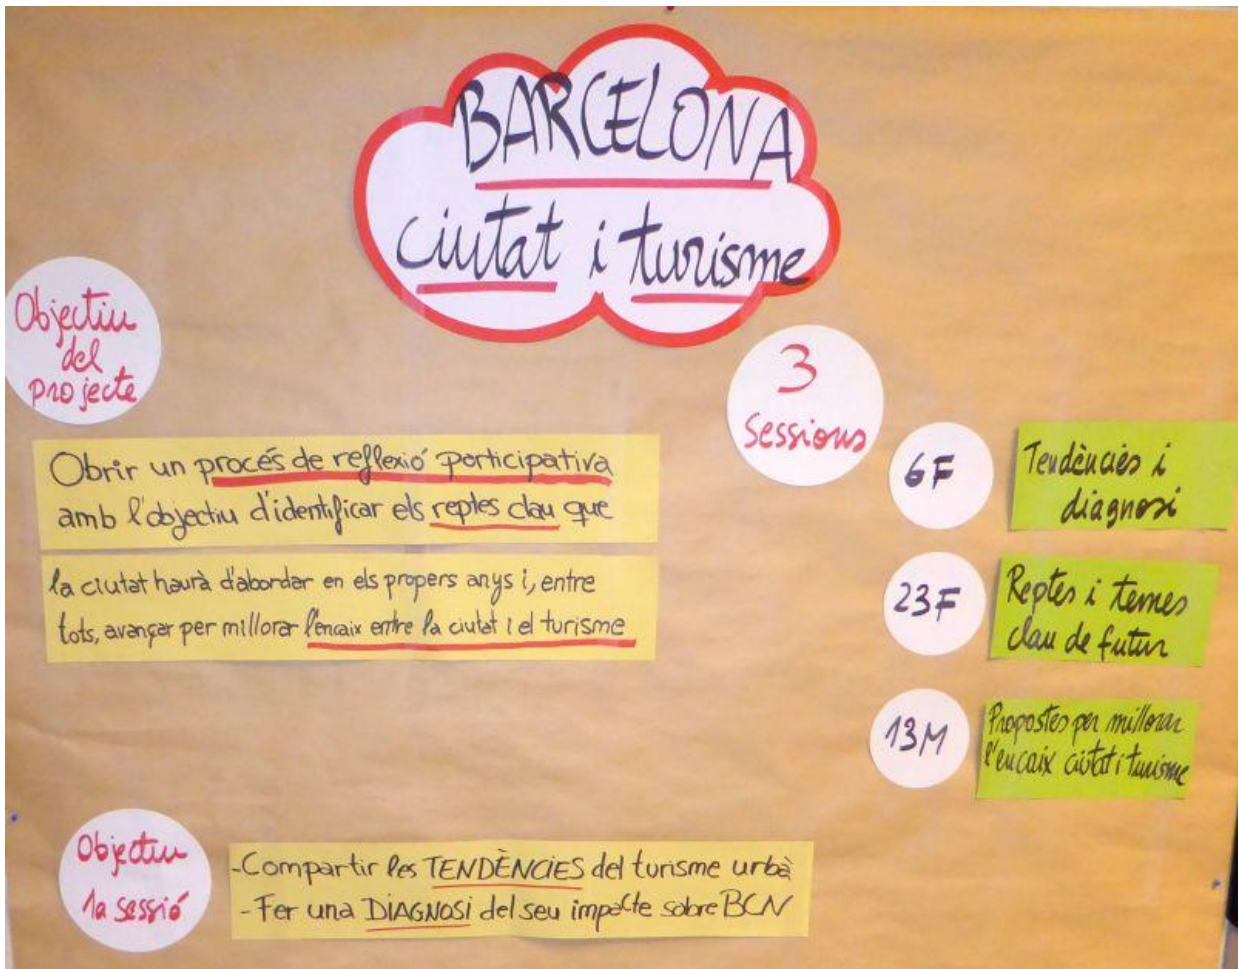 BARCELONA
ciutat i turisme
Objectiu
del
projecte
Obrir un procés de reflexió participativa
amb l'objectiu d'identificar els reptes clau que
la ciutat haurà d'abordar en els propers anys i, entre
tots, avançar per millorar l'encaix entre la ciutat i el turisme
3
sessions
6F
Tendències i
diagnosi
23F
Reptes i temes
clau de futur
13M
Propostes per millorar
l'encaix ciutat i turisme
Objectiu
1a sessió
-Compartir les TENDÈNCIES del turisme urbà
-Fer una DIAGNOSI del seu impacte sobre BCN